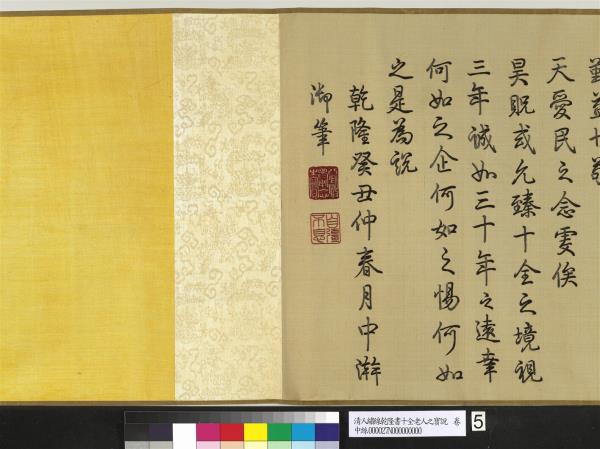 益
天愛民之念虔俟
昊貺或允臻十全之境視
三年誠如三十年之遠幸
何如之企何如之惕何如
之是為說
乾隆癸丑仲春月中澣
御筆
八徵耄念之寶
自彊不息
清人緙絲乾隆書十全老人之寶說 卷
中絲000027N000000000
5